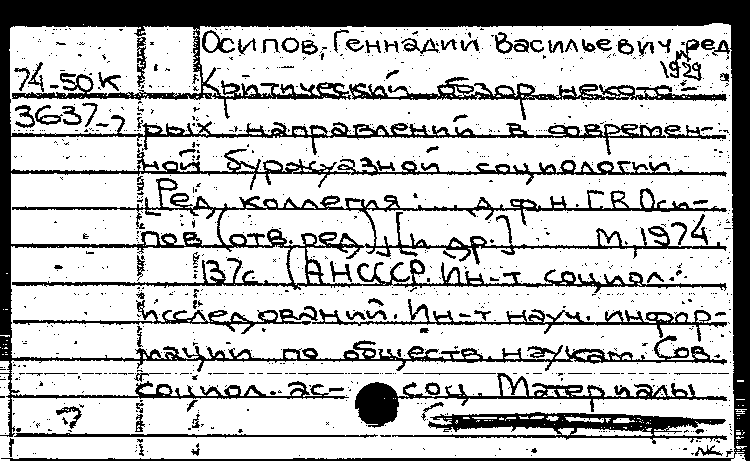 Осипов, Геннадий Васильевич, ред
1929
74-50к Критический обзор некото-
3637-7 рых направлений в современ-
ной буржуазной социологии.
[Ред. коллегия: ... д. ф. н. Г.В. Оси-
пов (отв. ред.), [и др.] М., 1974.
137с. (АН СССР. Ин-т социол.
исследований. Ин-т науч. инфор-
мации по обществ. наукам. Сов.
социол. ас- соц. Материалы